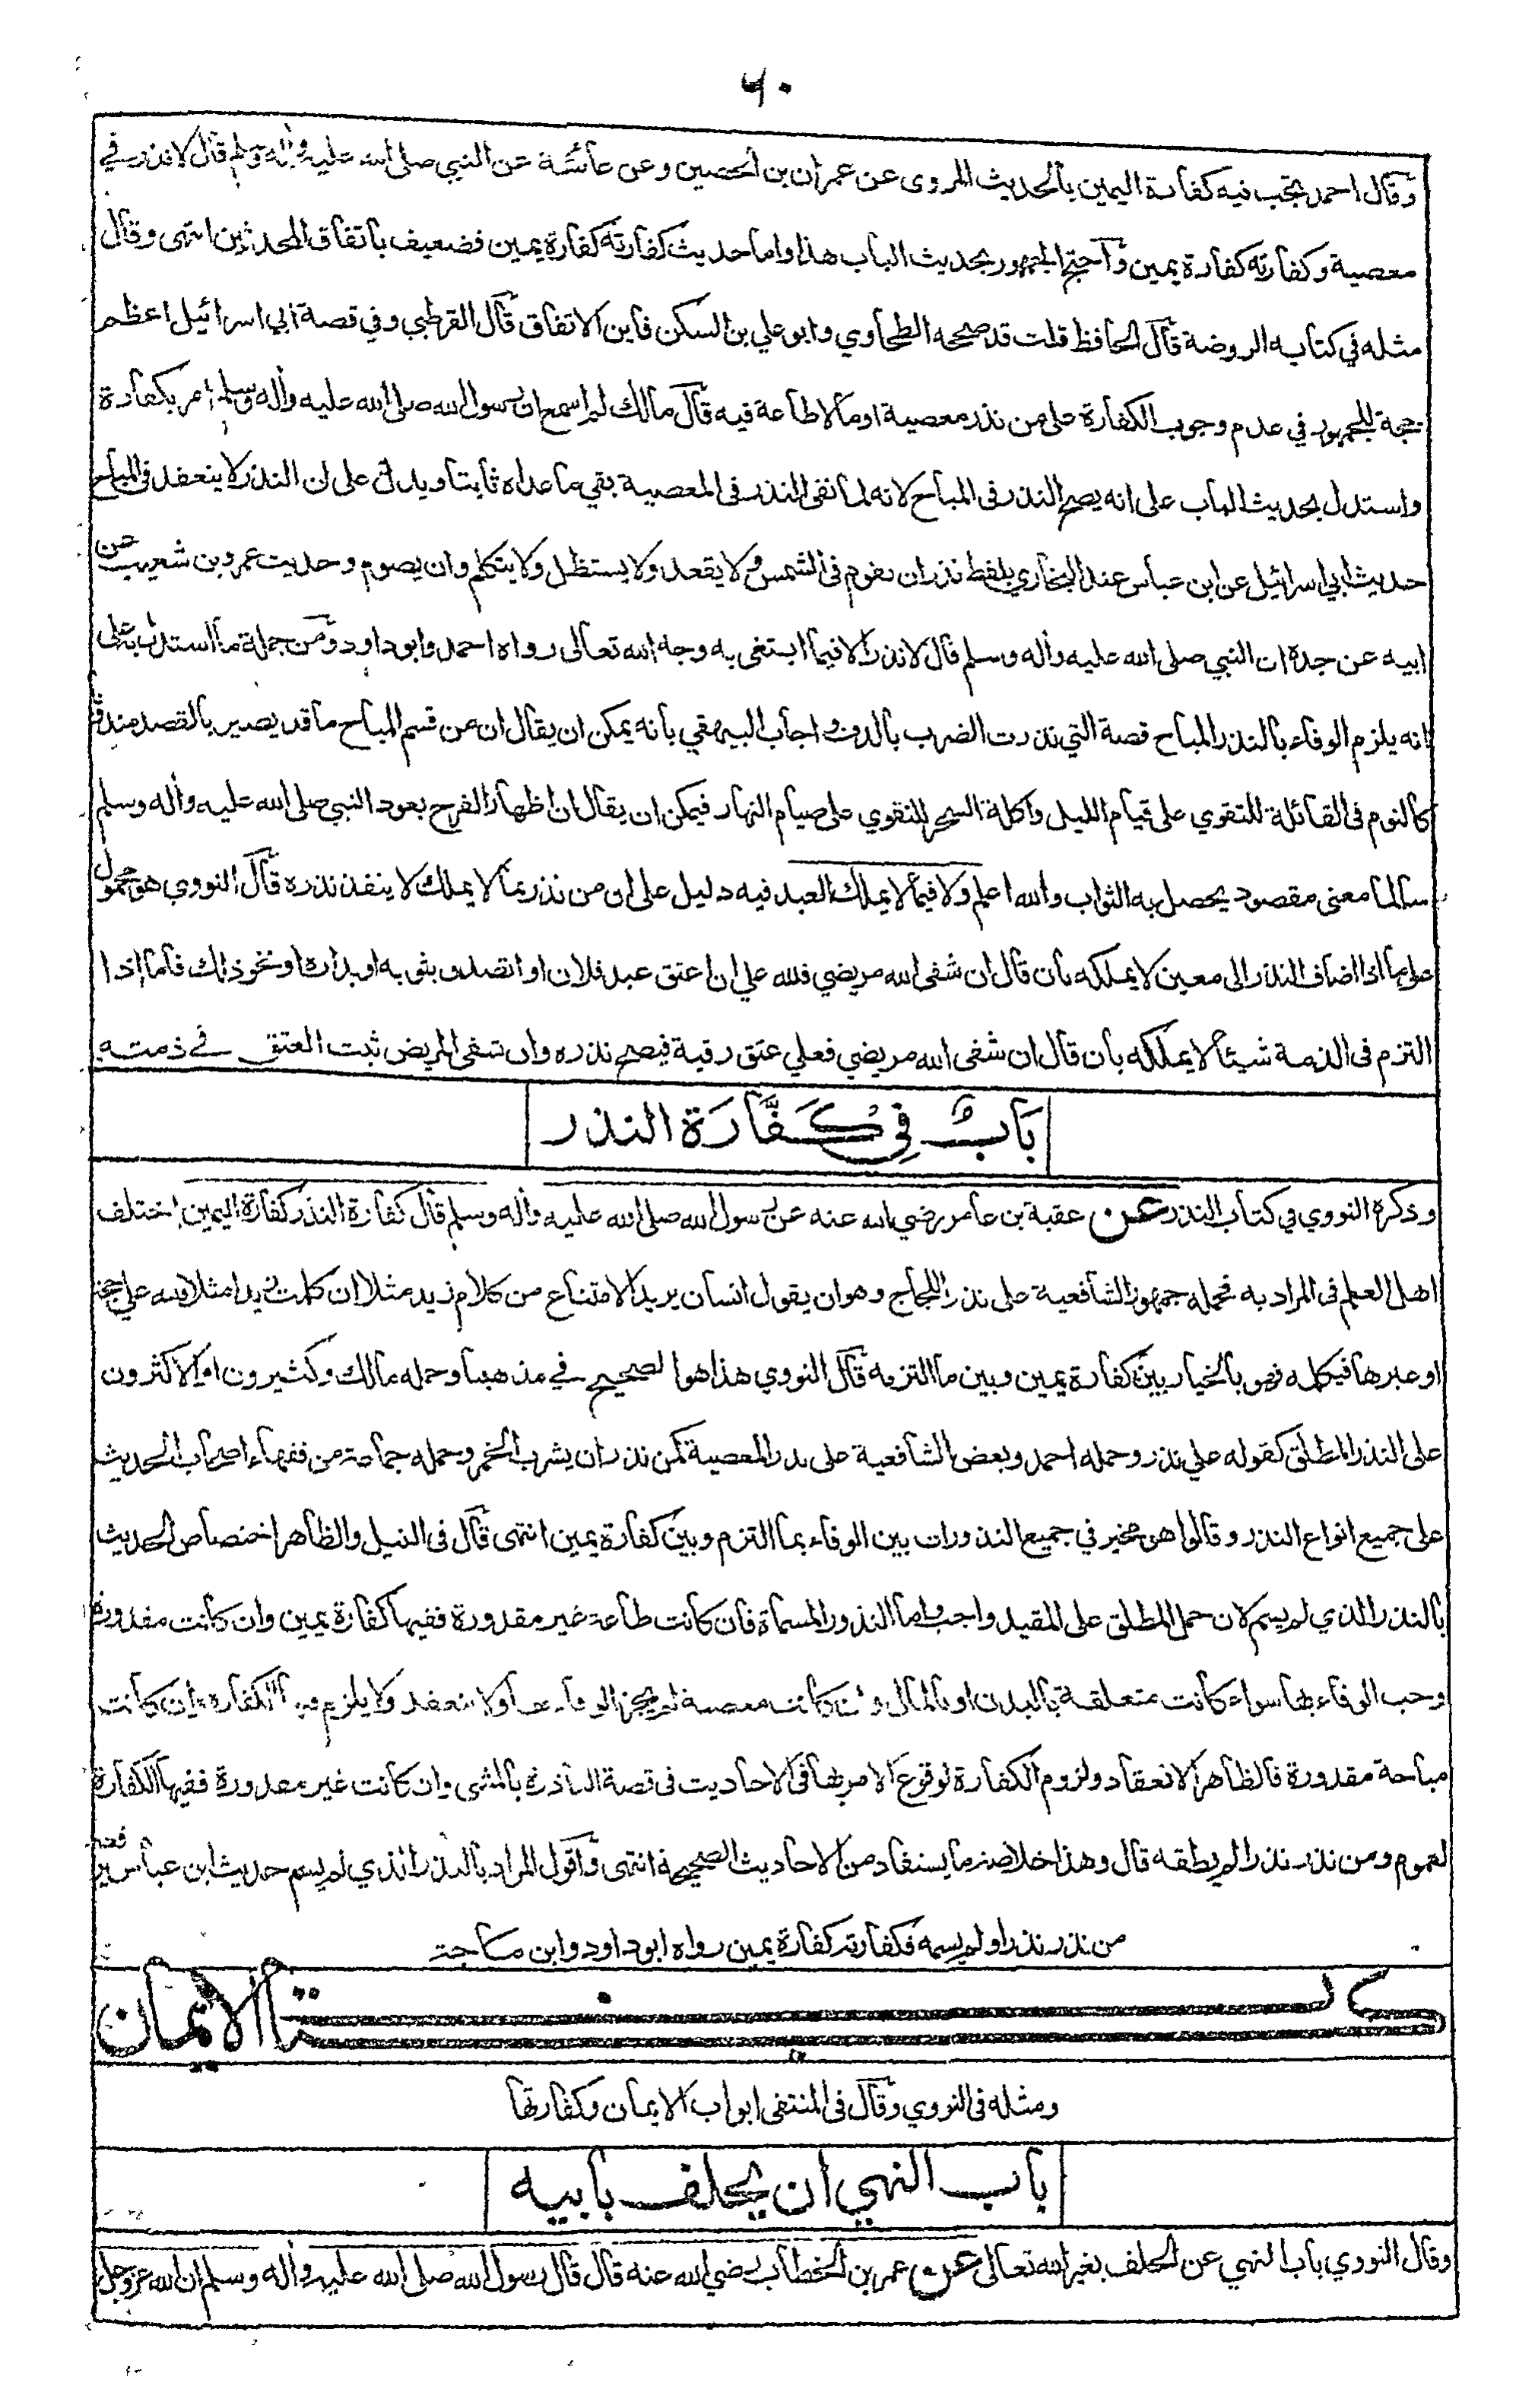 ٦٠
وقال احمد تجب فيه كفارة اليمين بالحديث المروى عن عمران بن الحصين وعن عائشة عن النبي صلى الله عليه وأله وسلم قال لا نذر في
معصية وكفارته كفارة يمين واحتج الجمهور بحديث الباب هذا واما حديث كفارته كفارة يمين فضعيف باتفاق المحدثين انتهى وقال
مثله في كتابه الروضة قال الحافظ قلت قد صححه الطحاوي وابو علي بن السكن فاين الاتفاق قال القرطبي وفي قصة ابي اسرائيل اعظم
حجة للجمهور في عدم وجوب الكفارة على من نذر معصية او ما لا طاعة فيه قال مالك لم اسمع ان رسول الله صلى الله عليه وأله وسلم امر بكفارة
واستدل بحديث الباب على انه يصح النذر فى المباح لانه لما نفى النذر فى المعصية بقي ما عداه ثابتا ويدل على ان النذر لا ينعقد فى المباح
حديث ابي اسرائيل عن ابن عباس عند البخاري بلفظ نذر ان يقوم فى الشمس ولا يقعد ولا يستظل ولا يتكلم وان يصوم وحديث عمرو بن شعيب عن
ابيه عن جده ان النبي صلى الله عليه وأله وسلم قال لا نذر الا فيما ابتغى به وجه الله تعالى رواه احمد وابو داود ومن جملة ما استدل به على
انه يلزم الوفاء بالنذر المباح قصة التي نذرت الضرب بالدف واجاب البيهقي بانه يمكن ان يقال ان من قسم المباح ما قد يصير بالقصد مندوبا
كالنوم فى القائلة للتقوي على قيام الليل واكلة السحر للتقوي على صيام النهار فيمكن ان يقال ان اظهار الفرح بعود النبي صلى الله عليه وأله وسلم
سالما معنى مقصود يحصل به الثواب والله اعلم ولا فيما لا يملك العبد فيه دليل على ان من نذر بما لا يملك لا ينفذ نذره قال النووي هو محمول
على ما اذا اضاف النذر الى معين لا يملكه بان قال ان شفى الله مريضي فلله علي ان اعتق عبد فلان او اتصدق بثوبه او بداره او نحو ذلك فاما اذا
التزم فى الذمة شيئا لا يملكه بان قال ان شفى الله مريضي فعلي عتق رقبة فيصح نذره وان شفى المريض ثبت العتق في ذمته
بَابٌ فِي كَفَّارَة النذر
وذكره النووي في كتاب النذر عن عقبة بن عامر رضي الله عنه عن رسول الله صلى الله عليه وأله وسلم قال كفارة النذر كفارة اليمين اختلف
اهل العلم فى المراد به فحمله جمهور الشافعية على نذر اللجاج وهو ان يقول انسان يريد الامتناع من كلام زيد مثلا ان كلمت زيدا مثلا فلله علي حجة
او غيرها فيكلمه فهو بالخيار بين كفارة يمين وبين ما التزمه قال النووي هذا هو الصحيح في مذهبنا وحمله مالك وكثيرون او الاكثرون
على النذر المطلق كقوله علي نذر وحمله احمد وبعض الشافعية على نذر المعصية كمن نذر ان يشرب الخمر وحمله جماعة من فقهاء اصحاب الحديث
على جميع انواع النذر وقالوا هو مخير في جميع النذورات بين الوفاء بما التزم وبين كفارة يمين انتهى قال فى النيل والظاهر اختصاص الحديث
بالنذر الذي لم يسم لان حمل المطلق على المقيد واجب واما النذور المسماة فان كانت طاعة غير مقدورة ففيها كفارة يمين وان كانت مقدورة
وجب الوفاء بها سواء كانت متعلقة بالبدن او بالمال وان كانت معصية لم يجز الوفاء بها ولا ينعقد ولا يلزم فيه الكفارة وان كانت
مباحة مقدورة فالظاهر الانعقاد ولزوم الكفارة لوقوع الامر بها فى الاحاديث فى قصة الناذرة بالمشى وان كانت غير مقدورة ففيها الكفارة
لعموم ومن نذر نذرا لم يطقه قال وهذا خلاصة ما يستفاد من الاحاديث الصحيحة انتهى واقول المراد بالنذر الذي لم يسم حديث ابن عباس يرفعه
من نذر نذرا ولم يسمه فكفارته كفارة يمين رواه ابو داود وابن ماجة
كتاب الايمان
ومثله فى النووي وقال فى المنتقى ابواب الايمان وكفارتها
باب النهي ان يحلف بابيه
وقال النووي باب النهي عن الحلف بغير الله تعالى عن عمر بن الخطاب رضي الله عنه قال قال رسول الله صلى الله عليه وأله وسلم ان الله عز وجل